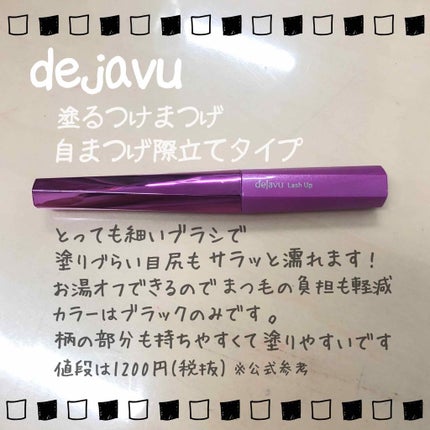 dejavu
塗るつけまつげ
自まつげ際立てタイプ
dejavu Lash Up
とっても細いブラシで
塗りづらい目尻も サラッと濡れます！
お湯オフできるので まつもの負担も軽減
カラーはブラックのみです。
柄の部分も持ちやすくて塗りやすいです
値段は1200円(税抜) ※公式参考